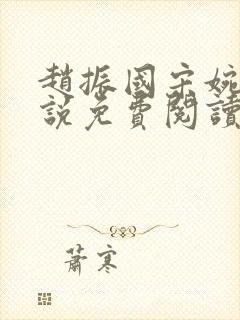 趙振國宋婉
說免費閱讀
蕭寒